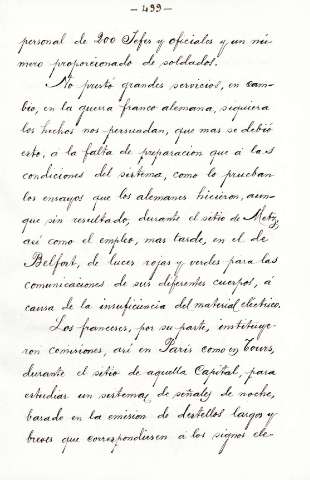 - 499 -
personal de 200 Jefes y oficiales y un nú-
mero proporcionado de soldados.
No prestó grandes servicios, en cam-
bio, en la guerra franco alemana, siquiera
los hechos nos persuadan, que mas se debió
esto, a la falta de preparación que á las
condiciones del sistema, como lo prueban
los ensayos que los alemanes hicieron, aun-
que sin resultado, durante el sitio de Metz,
asi como el empleo, mas tarde, en el de
Belfort, de luces rojas y verdes para las
comunicaciones de sus diferentes cuerpos, á
causa de la insuficiencia del material electrico.
Los franceses, por su parte, instituye-
ron comisiones, asi en Paris como en Tours,
durante el sitio de aquella Capital, para
estudiar un sistema de señales de noche,
basado en la emision de destellos largos y
breves que correspondiesen á los signos ele-